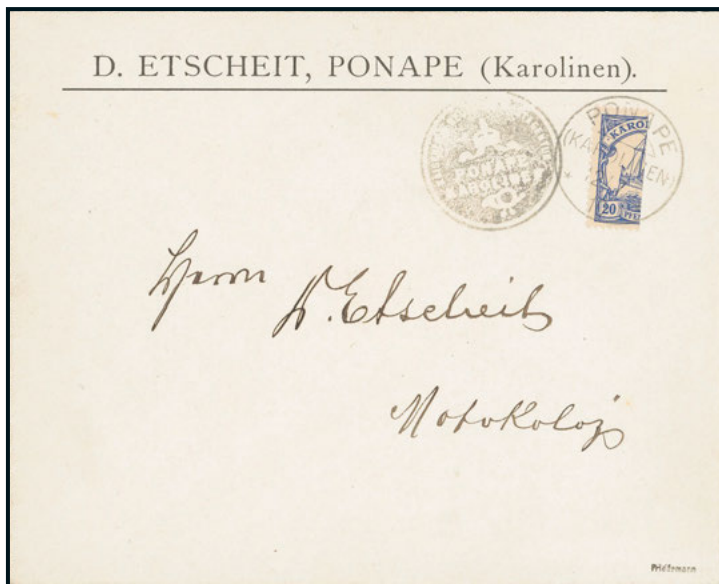 D. ETSCHEIT, PONAPE (Karolinen).
PONAPE
(KAROLINEN)
PONAPE
KAROLINEN
KAROL
20
Herrn
D. Etscheit
Motokoloj
Friedemann